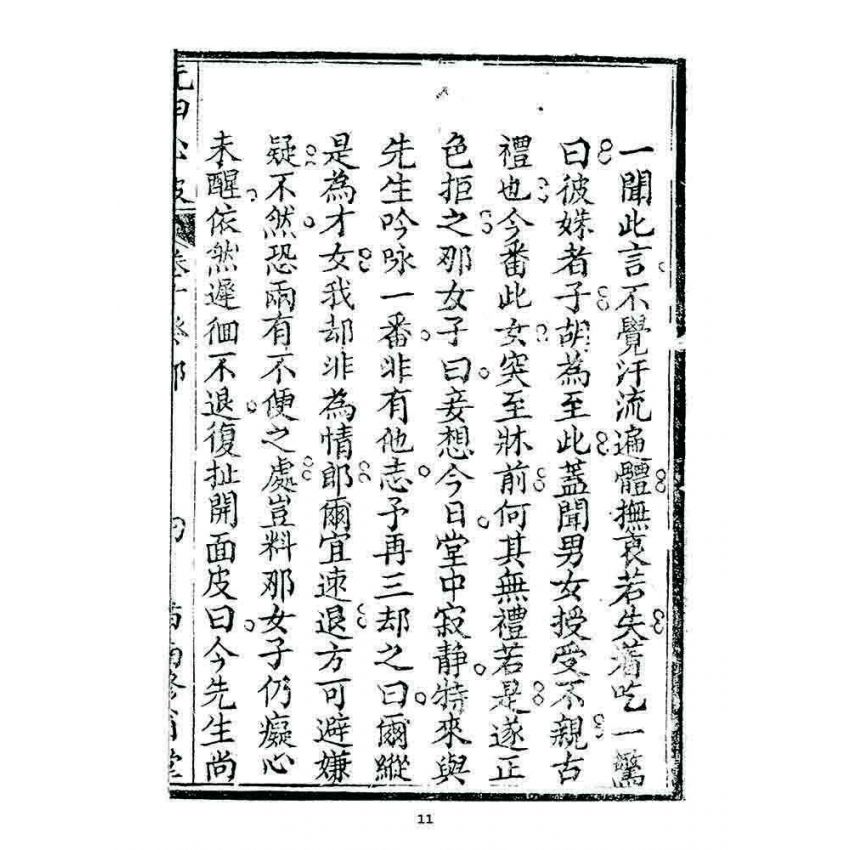 一聞此言不覺汗流遍體撫衷若失着吃一驚
曰彼姝者子胡為至此蓋聞男女授受不親古
禮也今番此女突至牀前何其無禮若是遂正
色拒之那女子曰妾想今日堂中寂靜特來與
先生吟咏一番非有他志予再三却之曰爾縱
是為才女我却非為情郎爾宜速退方可避嫌
疑不然恐兩有不便之處豈料那女子仍癡心
未醒依然遲徊不退復扯開面皮曰今先生尚
11